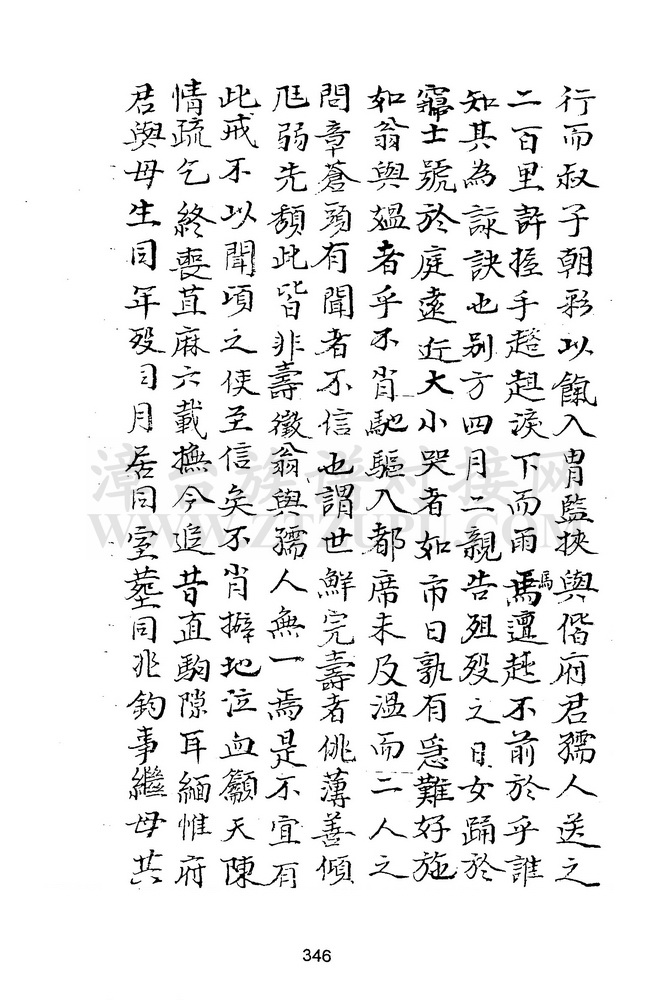 行而叔子朝彩以餼入胄監挾與偕府君孺人送之
二百里許握手趦趄淚下而雨馬邅趦不前於乎誰
知其為訣也別方四月二親告殂歿之日女踊於
士號於庭遠近大小哭者如市曰孰有急難好施
如翁與媼者乎不肖馳驅入都席未及溫而二人之
問章蒼頭有聞者不信也謂世鮮完壽者佻薄善傾
尪弱先頹此皆非壽徵翁與孺人無一焉是不宜有
此戒不以聞頃之使至信矣不肖擗地泣血籲天陳
情疏乞終喪苴麻六載撫今追昔直駒隙耳緬惟府
君與母生同年歿同月居同室塟同兆鈞事繼母共
346
漳台族谱对接网
WWW.ZTZUPU.COM